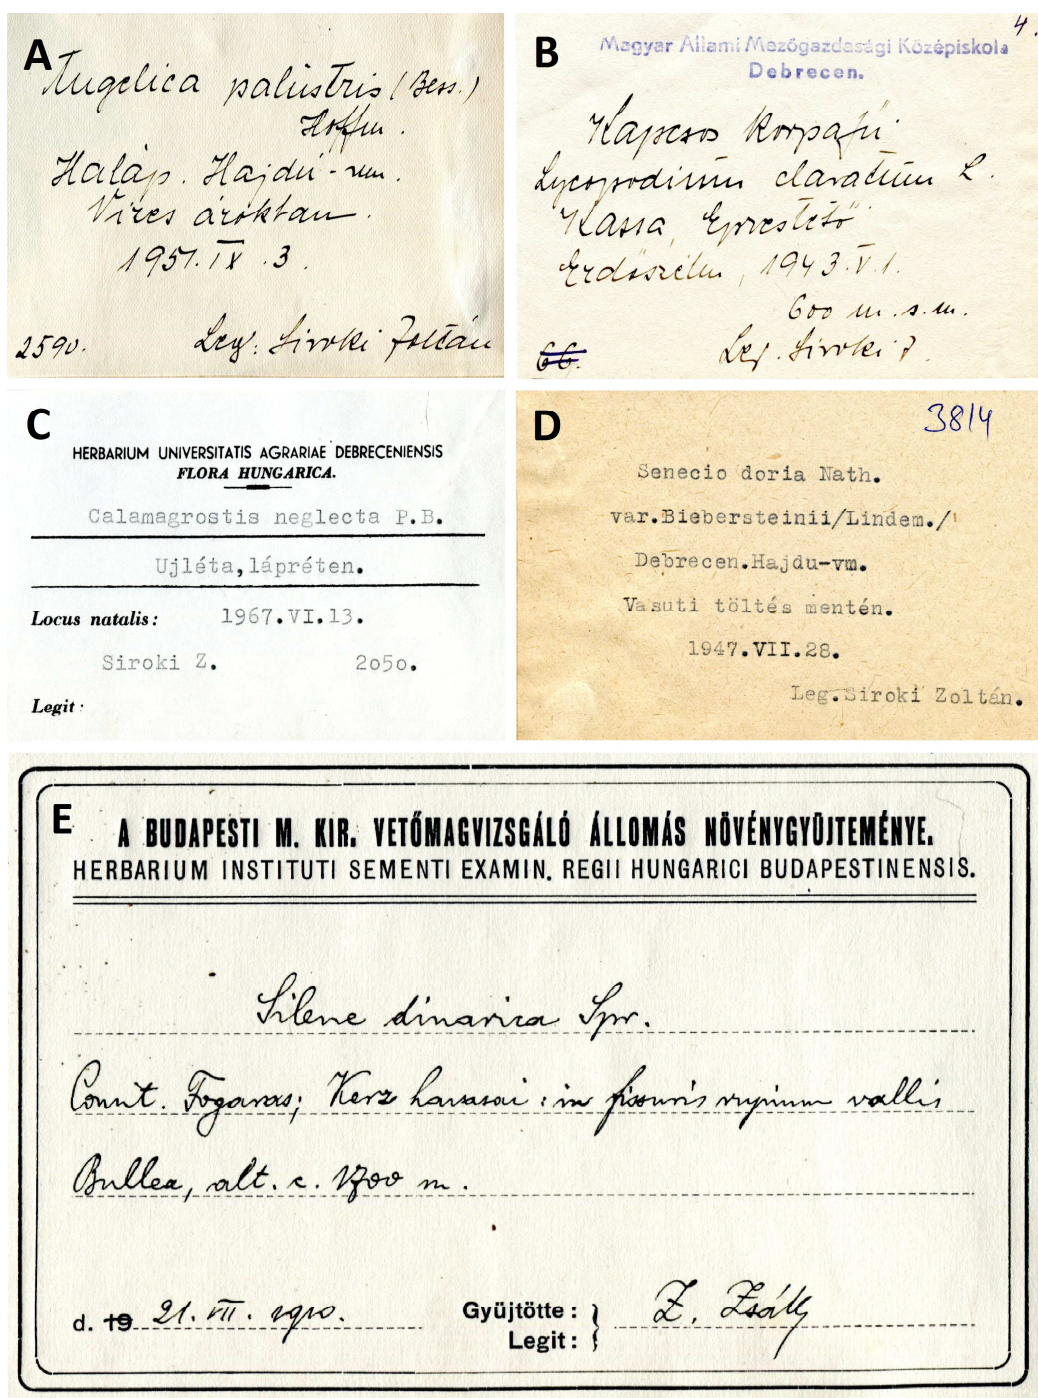 A
Angelica palustris (Bess.)
Hoffm.
Haláp. Hajdú-vm.
Vizes árokban.
1951.IX.3.
2590. Leg. Siroki Zoltán
B
4.
Magyar Állami Mezőgazdasági Középiskola
Debrecen.
Kapcsos korpafű
Lycopodium clavatum L.
Kassa, Eprestető
Erdőszélen, 1943.V.1.
600 m.s.m.
66. Leg. Siroki Z.
C
HERBARIUM UNIVERSITATIS AGRARIAE DEBRECENIENSIS
FLORA HUNGARICA.
Calamagrostis neglecta P.B.
Ujléta,lápréten.
Locus natalis: 1967.VI.13.
Siroki Z. 2o5o.
Legit:
D
3814
Senecio doria Nath.
var.Biebersteinii/Lindem./
Debrecen.Hajdu-vm.
Vasuti töltés mentén.
1947.VII.28.
Leg.Siroki Zoltán.
E
A BUDAPESTI M. KIR. VETŐMAGVIZSGÁLÓ ÁLLOMÁS NÖVÉNYGYŰJTEMÉNYE.
HERBARIUM INSTITUTI SEMENTI EXAMIN. REGII HUNGARICI BUDAPESTINENSIS.
Silene dinarica Spr.
Comit. Fogaras; Kerz havasai: in fissuris rupium vallis
Bullea, alt. c. 1700 m.
d. 19 21. VII. 1910. Gyüjtötte: Z. Zsák
Legit: